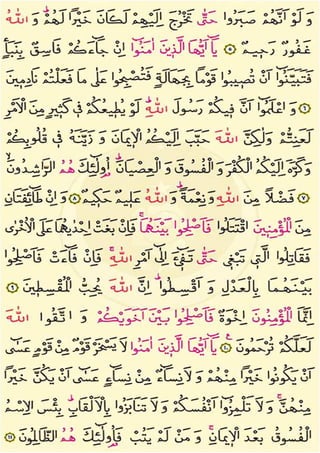 وَ لَوْ اَنَّهُمْ صَبَرُوْا حَتّٰى تَخْرُجَ اِلَيْهِمْ لَكَانَ خَيْرًا لَهُمْ ۜ وَ اللّٰهُ
غَفُوْرٌ رَحٖيمٌ ﴿٥﴾ يَٓا اَيُّهَا الَّذٖينَ اٰمَنُٓوا اِنْ جَٓاءَكُمْ فَاسِقٌ بِنَبَاٍ
فَتَبَيَّنُٓوا اَنْ تُصٖيبُوا قَوْمًا بِجَهَالَةٍ فَتُصْبِحُوا عَلٰى مَا فَعَلْتُمْ نَادِمٖينَ
﴿٦﴾ وَ اعْلَمُٓوا اَنَّ فٖيكُمْ رَسُولَ اللّٰهِ ۜ لَوْ يُطٖيعُكُمْ فٖى كَثٖيرٍ مِنَ الْاَمْرِ
لَعَنِتُّمْ وَ لٰكِنَّ اللّٰهَ حَبَّبَ اِلَيْكُمُ الْاٖيمَانَ وَ زَيَّنَهُ فٖى قُلُوبِكُمْ
وَ كَرَّهَ اِلَيْكُمُ الْكُفْرَ وَ الْفُسُوقَ وَ الْعِصْيَانَ ۜ اُولٰٓئِكَ هُمُ الرَّاشِدُونَ ۙ
﴿٧﴾ فَضْلًا مِنَ اللّٰهِ وَ نِعْمَةً ۜ وَ اللّٰهُ عَلٖيمٌ حَكٖيمٌ ﴿٨﴾ وَ اِنْ طَٓائِفَتَانِ
مِنَ الْمُؤْمِنٖينَ اقْتَتَلُوا فَاَصْلِحُوا بَيْنَهُمَا ۚ فَاِنْ بَغَتْ اِحْدٰيهُمَا عَلَى الْاُخْرٰى
فَقَاتِلُوا الَّتٖى تَبْغٖى حَتّٰى تَفٖٓىءَ اِلٰٓى اَمْرِ اللّٰهِ ۚ فَاِنْ فَٓاءَتْ فَاَصْلِحُوا
بَيْنَهُمَا بِالْعَدْلِ وَ اَقْسِطُوا ۜ اِنَّ اللّٰهَ يُحِبُّ الْمُقْسِطٖينَ ﴿٩﴾
اِنَّمَا الْمُؤْمِنُونَ اِخْوَةٌ فَاَصْلِحُوا بَيْنَ اَخَوَيْكُمْ ۚ وَ اتَّقُوا اللّٰهَ
لَعَلَّكُمْ تُرْحَمُونَ ﴿١٠﴾ يَٓا اَيُّهَا الَّذٖينَ اٰمَنُوا لَا يَسْخَرْ قَوْمٌ مِنْ قَوْمٍ عَسٰٓى
اَنْ يَكُونُوا خَيْرًا مِنْهُمْ وَ لَا نِسَٓاءٌ مِنْ نِسَٓاءٍ عَسٰٓى اَنْ يَكُنَّ خَيْرًا
مِنْهُنَّ ۚ وَ لَا تَلْمِزُٓوا اَنْفُسَكُمْ وَ لَا تَنَابَزُوا بِالْاَلْقَابِ ۜ بِئْسَ الْاِسْمُ
الْفُسُوقُ بَعْدَ الْاٖيمَانِ ۚ وَ مَنْ لَمْ يَتُبْ فَاُولٰٓئِكَ هُمُ الظَّالِمُونَ ﴿١١﴾